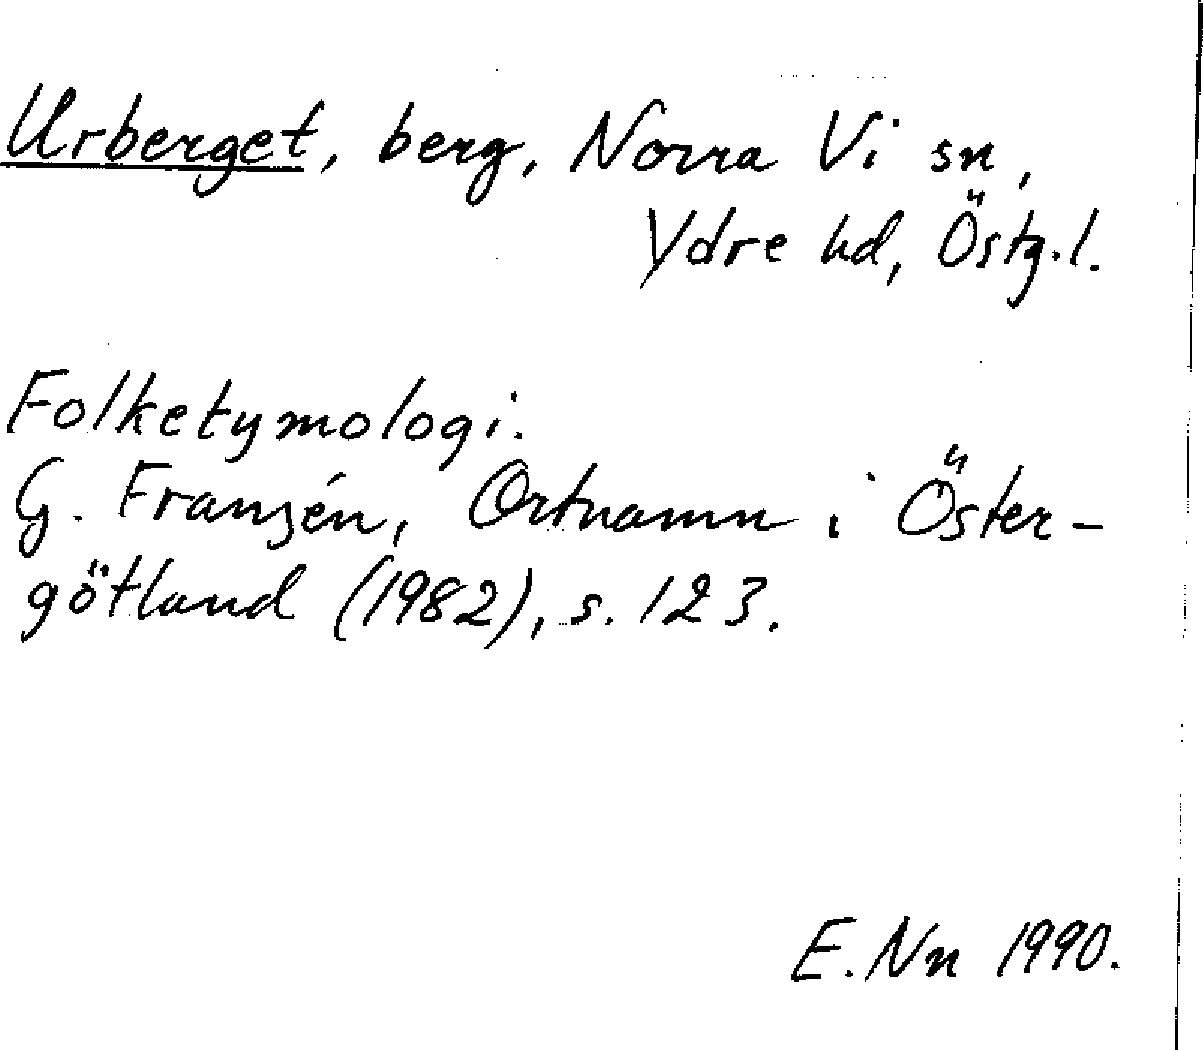 Urberget, berg, Norra Vi sn,
Ydre hd, Östg.l.
Folketymologi.
G. Franzén, Ortnamn i Öster-
götland (1982), s. 123.
E. Nn 1990.